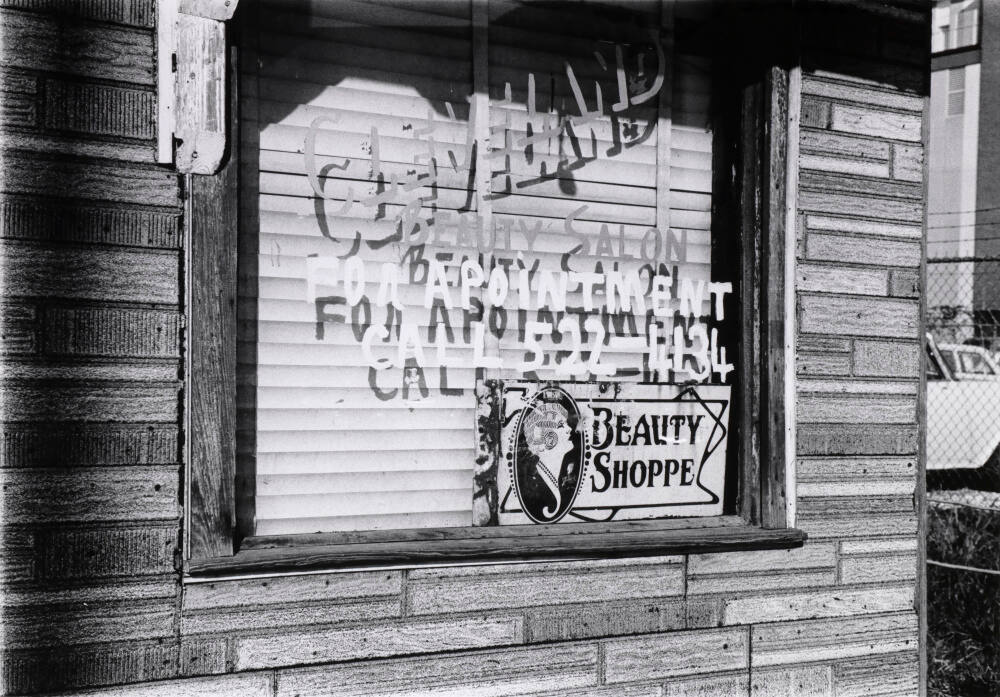 BEAUTY SALON
FOR APOINTMENT
CALL 522-4434
BEAUTY
SHOPPE